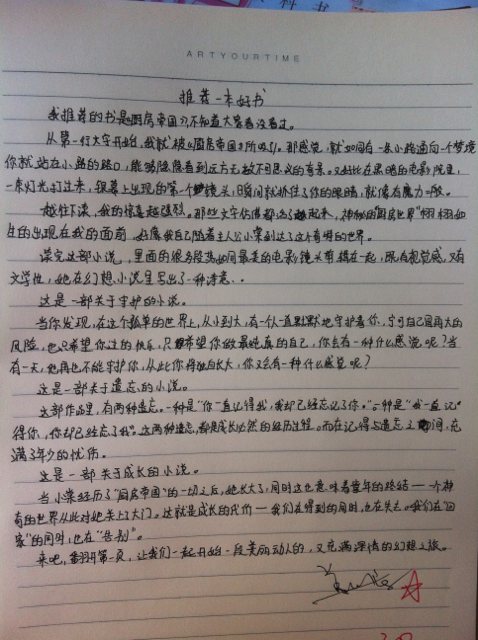 科书
ARTYOURTIME
推荐一本好书
我推荐的书是《厨房帝国》,不知道大家看没看过。
从第一行文字开始,我就被《厨房帝国》所吸引。那感觉,就如同有一条小路通向一个梦境
你就站在小路的路口,能够隐隐看到远方无数不可思议的奇景。又好比在黑暗的电影院里,
一束灯光打过来,银幕上出现的第一个镜头,瞬间就抓住了你的眼睛,就像有魔力一般。
越往下读,我的惊喜越强烈。那些文字仿佛都活了起来,神秘的厨房世界栩栩如
生的出现在我的面前,好像我自己随着主人公小棠到达了这个奇特的世界。
读完这部小说,里面的很多段落如同最美的电影镜头剪辑在一起,既有视觉感,又有
文学性,她在幻想小说里写出了一种诗意..
这是一部关于守护的小说。
当你发现,在这个孤单的世界上,从小到大,有一个人一直默默地守护着你,宁可自己冒再大的
风险,也只希望你过的快乐,只希望你做最纯真的自己,你会有一种什么感觉呢?当
有一天,他再也不能守护你,从此你将独自长大,你又会有一种什么感觉呢?
这是一部关于遗忘的小说。
这部作品里,有两种遗忘。一种是"你一直记得我,我却已经忘记了你。"另一种是"我一直记
得你,你却已经忘了我"。这两种遗忘,都是成长必然的经历过程。而在记得与遗忘之间,充
满了年少的忧伤。
这是一部关于成长的小说。
当小棠经历了"厨房帝国"的一切之后,她长大了,同时这也意味着童年的终结——一个神
奇的世界从此对她关上了大门。这就是成长的代价——我们在得到的同时,也在失去。我们在"回
家"的同时,也在"告别"。
来吧,翻开第一页,让我们一起开始一段美丽动人的,又充满深情的幻想之旅。